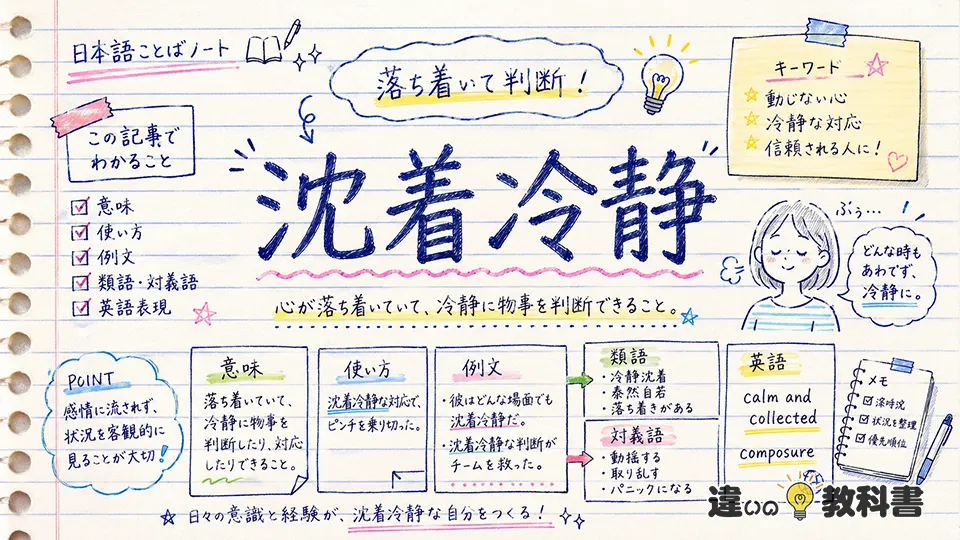 日本語ことばノート
落ち着いて判断！
キーワード
動じない心
冷静な対応
信頼される人に！
この記事で
わかること
意味
使い方
例文
類語・対義語
英語表現
沈着冷静
心が落ち着いていて、冷静に物事を判断できること。
ふぅ…
どんな時も
あわてず、
冷静に。
POINT
感情に流されず、
状況を客観的に
見ることが大切！
意味
落ち着いていて、
冷静に物事を
判断したり、対応
したりできること。
使い方
沈着冷静な対応で、
ピンチを乗り切った。
例文
・彼はどんな場面でも
沈着冷静だ。
・沈着冷静な判断が
チームを救った。
類語
・冷静沈着
・泰然自若
・落ち着きがある
対義語
・動揺する
・取り乱す
・パニックになる
英語
calm and
collected
composure
メモ
状況を整理
優先順位
日々の意識と経験が、沈着冷静な自分をつくる！
違いの教科書